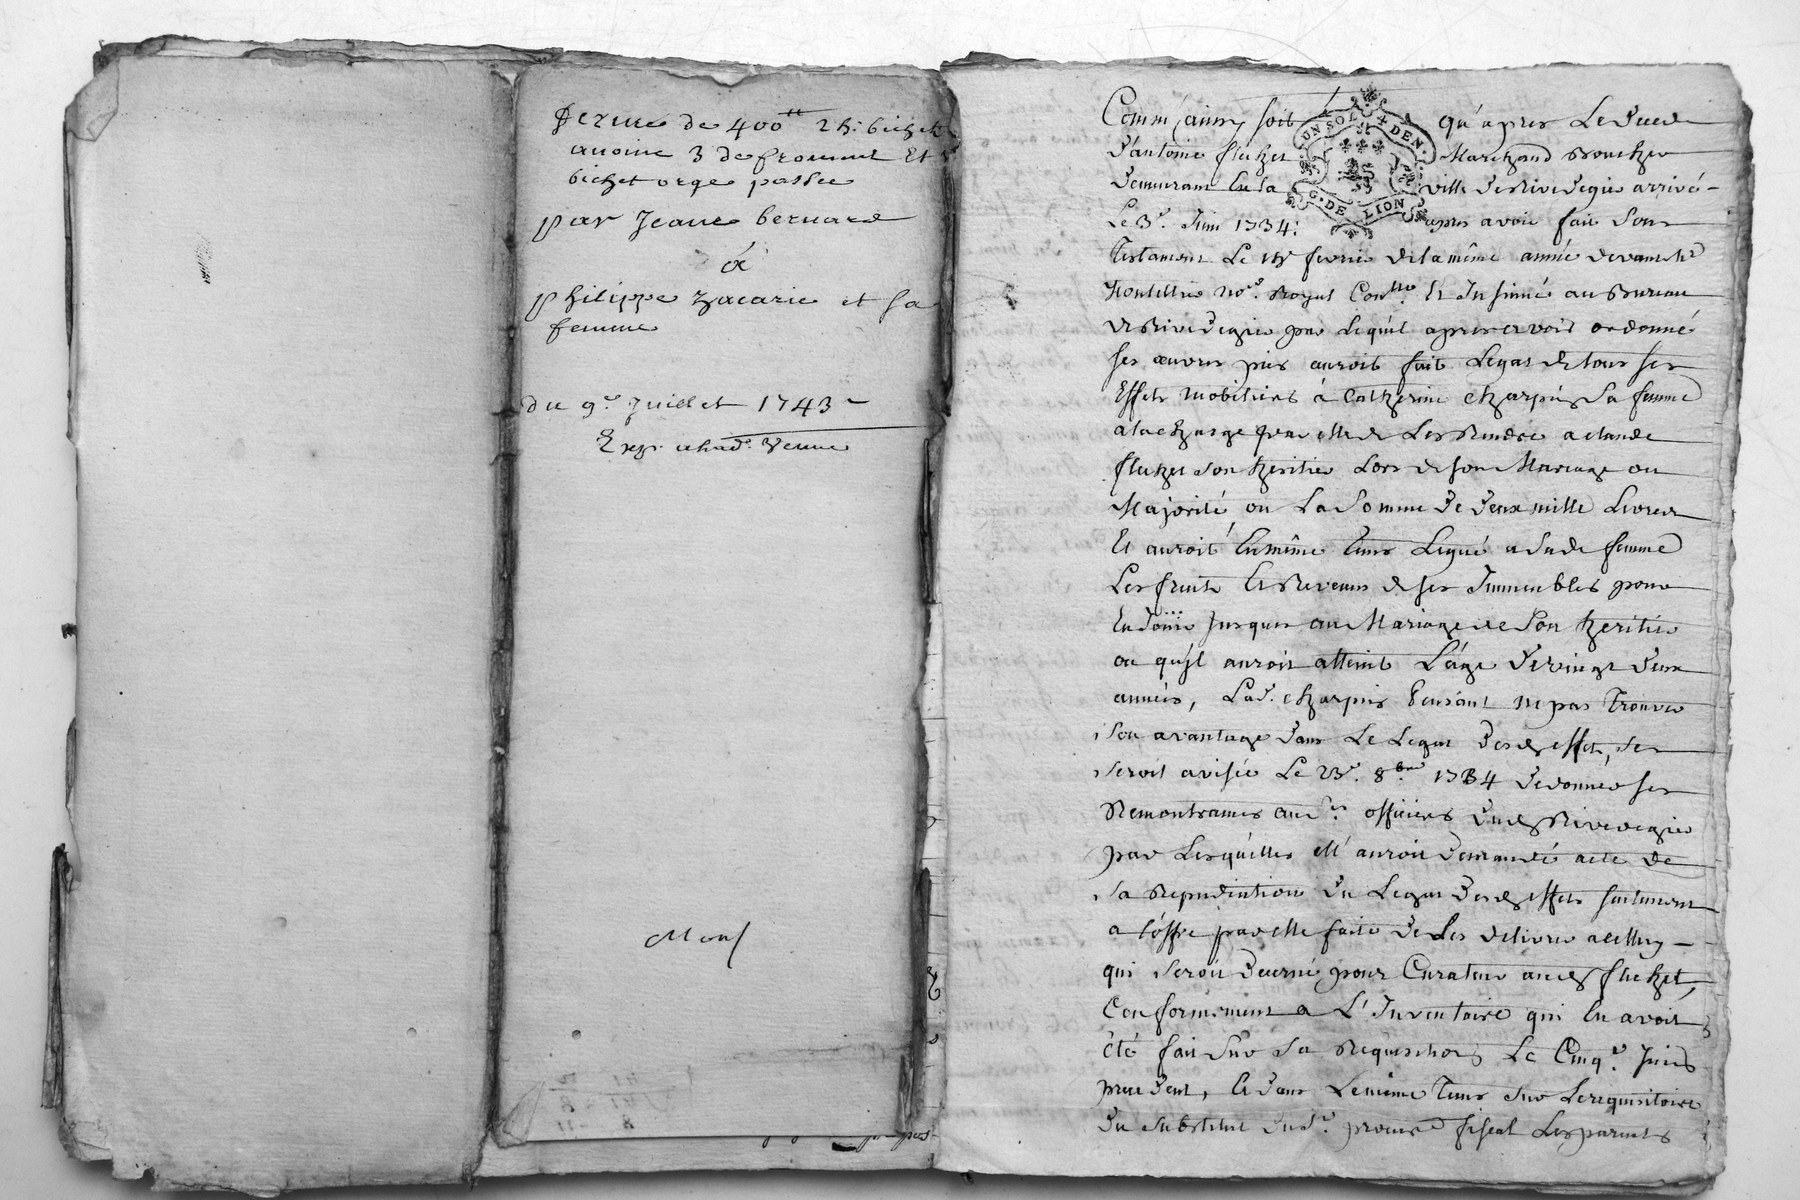 ferme de 400 ₶ 2 h: bichet
avoine 3 de froment Et
bichet orge passée
par Jeanne bernard
à
philippe zacarie et sa
femme
du 9e Juillet 1743
Exp.
Comm' ainsy soit qu'apres Le deced
d'antoine fluchet Marchand Boucher
demeurant En la ville de Rive de gier arrivé
Le 3e. Juin 1734: apres avoir fait Son
Testament Le fevrier de la même année devant Me
no.re Royal Et Insinué au Bureau
de Rive de gier par Lequel apres avoir ordonné
ses œuvres pies auroit fait Legat de tous ses
Effets mobiliers à Catherine Charpin Sa femme
a la charge par elle de Les Rendre a claude
fluchet son heritier Lors de son Mariage ou
Majorité ou La Somme de deux mille Livres
Et auroit En même Tems Legué a Sade femme
Les fruits Et Revenus de ses Immeubles pour
En Jouir Jusques au Mariage de Son heritier
ou qu'il auroit atteint L'age de vingt deux
années, Lad. Charpin Pensant ne pas Trouver
Son avantage dans Le Legat desd effets, Se
Seroit avisée Le 23e. 8bre 1734 de donner ses
Remontrances aux officiers dud Rive de gier
par Lesquelles Ell' auroit demandé acte de
Sa Repudiation du Legat desd effets Seulement
a L'offre par elle faite de Les delivrer a celluy
qui Seroit decerné pour Curateur aud fluchet,
Conformement a L'Inventaire qui En avoit
été fait Sur Sa Requisition Le Cinq.e Juin
precedent, Et dans Le même Tems Sur Le requisitoire
Du Substitut du Sr. procur. fiscal Les parents
UN SOL 4 DEN.
G. DE LION